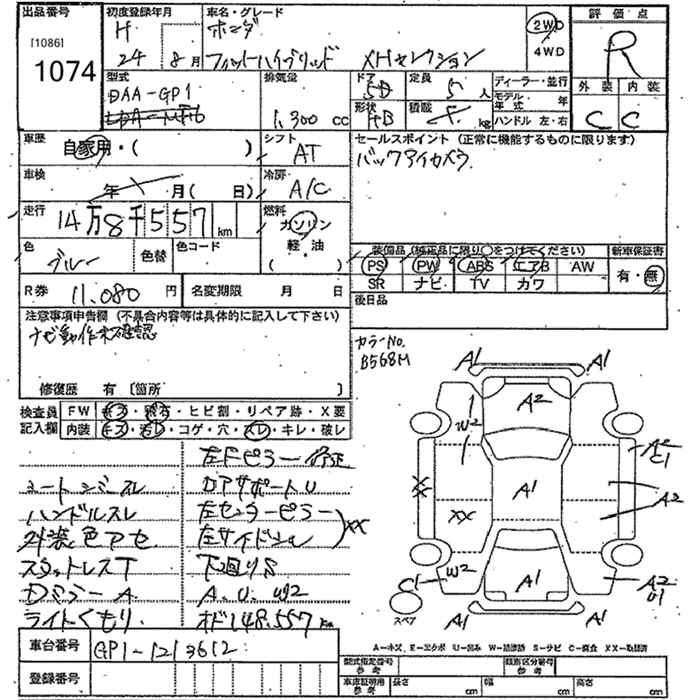 出品番号
[1086]
1074
初度登録年月
H
24 8月
車名・グレード
ホンダ
フィットハイブリッド XHセレクション
2WD
4WD
評価点
R
外装 内装
C C
型式
DAA-GP1
排気量
1,300 cc
ドア
5D
形状
HB
定員
5 人
積載
kg
ディーラー・並行
モデル年式 年
ハンドル 左・右
車歴
自家用・( )
シフト
AT
車検
年 月(日)
冷房
A/C
走行
14万8千557 km
燃料
ガソリン
軽・油
( )
色
ブルー
色替
色コード
R券 11,080 円
名変期限 月 日
セールスポイント(正常に機能するものに限ります)
バックアイカメラ
装備品(純正品に限り○をつけてください)
PS PW ABS エアB AW
SR ナビ TV カワ
新車保証書
有・無
後日品
注意事項申告欄(不具合内容等は具体的に記入して下さい)
ナビ動作未確認
修復歴 有 〔箇所 〕
カラーNo.
B568M
検査員記入欄
FW キズ・飛石・ヒビ割・リペア跡・X要
内装 キズ・汚レ・コゲ・穴・スレ・キレ・破レ
左Fピラー修正
シートシミスレ
ロアサポートU
ハンドルスレ
左センターピラー
外装色アセ
左サイドシル
XX
スタットレスT
下廻りS
DミラーA
A.U.W2
ライトくもり
オド148,557km
A1 A1
A2
W2
A2
C1
XX
A1
A2
XX
C1 W2
A1
A2
U1
スペア
A1 A1
A-キズ、E-エクボ U-凹み W-補修跡 S-サビ C-腐食 XX-取替済
車台番号
GP1-1213612
登録番号
型式指定番号
参考
類別区分番号
参考
車庫証明用
参考
長さ cm
幅 cm
高さ cm